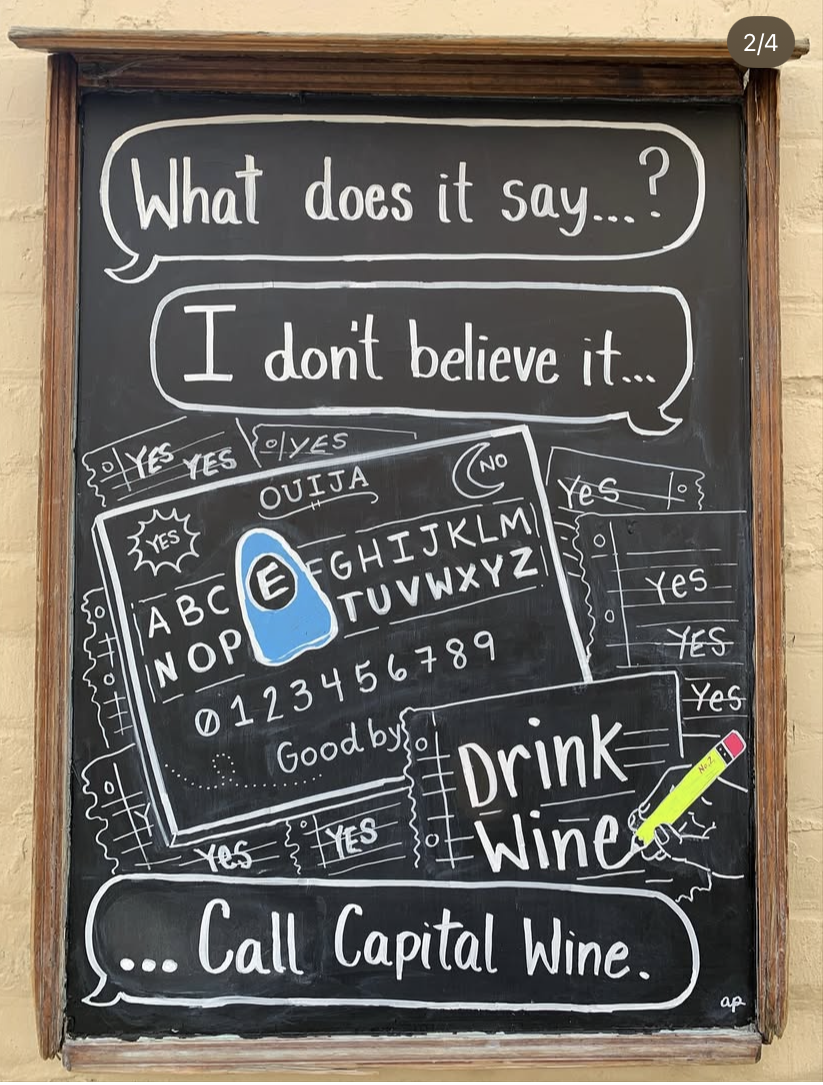 2/4
What does it say...?
I don't believe it...
YES YES
YES
OUIJA
NO
YES
A B C E F G H I J K L M
N O P T U V W X Y Z
0 1 2 3 4 5 6 7 8 9
Good by
Yes
Yes
YES
Yes
Drink
Wine
No. 2
Yes
YES
... Call Capital Wine.
ap